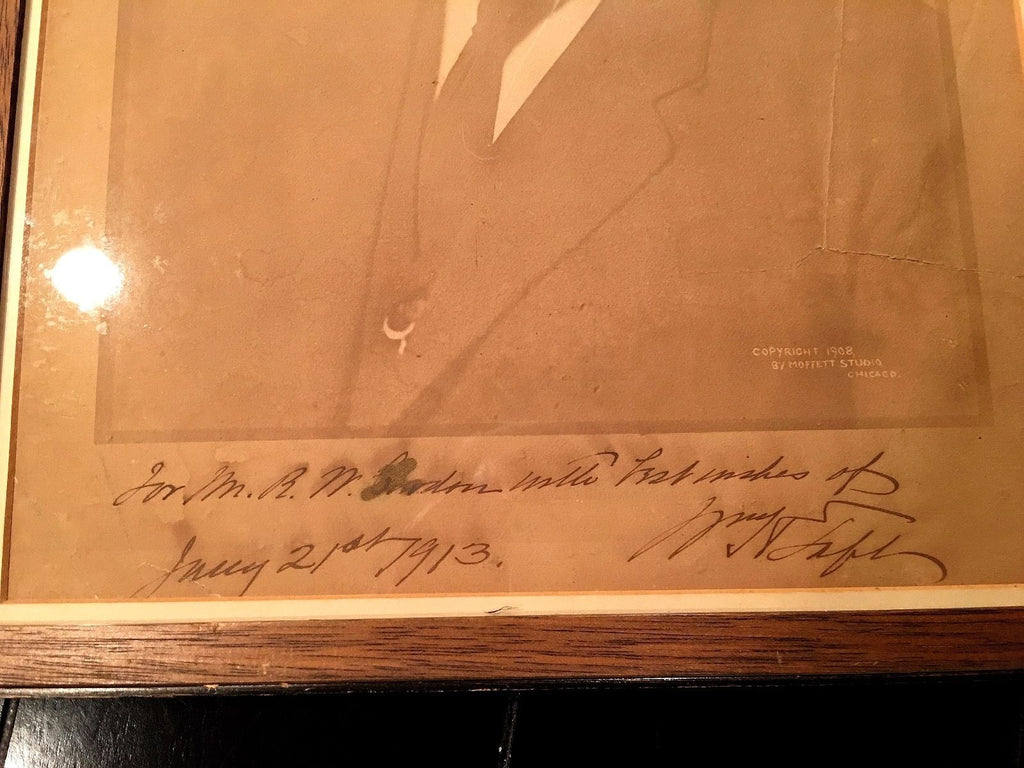 COPYRIGHT 1908
BY MOFFETT STUDIO
CHICAGO.
For Mr. R. W. with best wishes of
Wm H Taft
Jany 21st 1913.